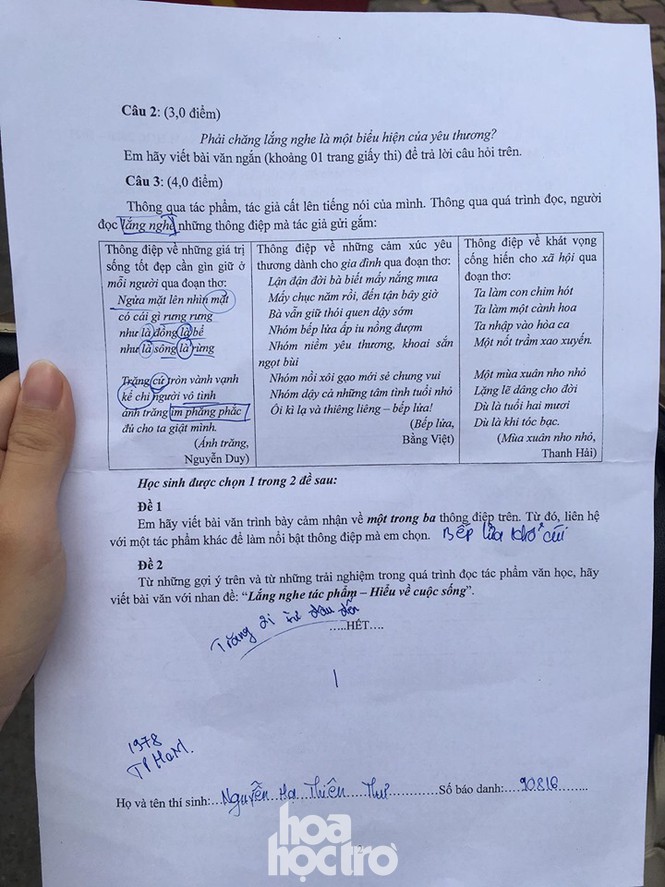 Câu 2: (3,0 điểm)
Phải chăng lắng nghe là một biểu hiện của yêu thương?
Em hãy viết bài văn ngắn (khoảng 01 trang giấy thi) để trả lời câu hỏi trên.
Câu 3: (4,0 điểm)
Thông qua tác phẩm, tác giả cất lên tiếng nói của mình. Thông qua quá trình đọc, người
đọc lắng nghe những thông điệp mà tác giả gửi gắm:
Thông điệp về những giá trị
sống tốt đẹp cần gìn giữ ở
mỗi người qua đoạn thơ:
Ngửa mặt lên nhìn mặt
có cái gì rưng rưng
như là đồng là bể
như là sông là rừng
Trăng cứ tròn vành vạnh
kể chi người vô tình
ánh trăng im phăng phắc
đủ cho ta giật mình.
(Ánh trăng,
Nguyễn Duy)
Thông điệp về những cảm xúc yêu
thương dành cho gia đình qua đoạn thơ:
Lận đận đời bà biết mấy nắng mưa
Mấy chục năm rồi, đến tận bây giờ
Bà vẫn giữ thói quen dậy sớm
Nhóm bếp lửa ấp iu nồng đượm
Nhóm niềm yêu thương, khoai sắn
ngọt bùi
Nhóm nồi xôi gạo mới sẻ chung vui
Nhóm dậy cả những tâm tình tuổi nhỏ
Ôi kì lạ và thiêng liêng – bếp lửa!
(Bếp lửa,
Bằng Việt)
Thông điệp về khát vọng
cống hiến cho xã hội qua
đoạn thơ:
Ta làm con chim hót
Ta làm một cành hoa
Ta nhập vào hòa ca
Một nốt trầm xao xuyến.
Một mùa xuân nho nhỏ
Lặng lẽ dâng cho đời
Dù là tuổi hai mươi
Dù là khi tóc bạc.
(Mùa xuân nho nhỏ,
Thanh Hải)
Học sinh được chọn 1 trong 2 đề sau:
Đề 1
Em hãy viết bài văn trình bày cảm nhận về một trong ba thông điệp trên. Từ đó, liên hệ
với một tác phẩm khác để làm nổi bật thông điệp mà em chọn. Bếp lửa khô củi
Đề 2
Từ những gợi ý trên và từ những trải nghiệm trong quá trình đọc tác phẩm văn học, hãy
viết bài văn với nhan đề: “Lắng nghe tác phẩm – Hiểu về cuộc sống”.
Trăng đi từ đâu đến
.....HẾT....
1978
TP HCM.
Họ và tên thí sinh:....Nguyễn Hà Thiên Thư.... Số báo danh:....90816........
hoa
học trò
2